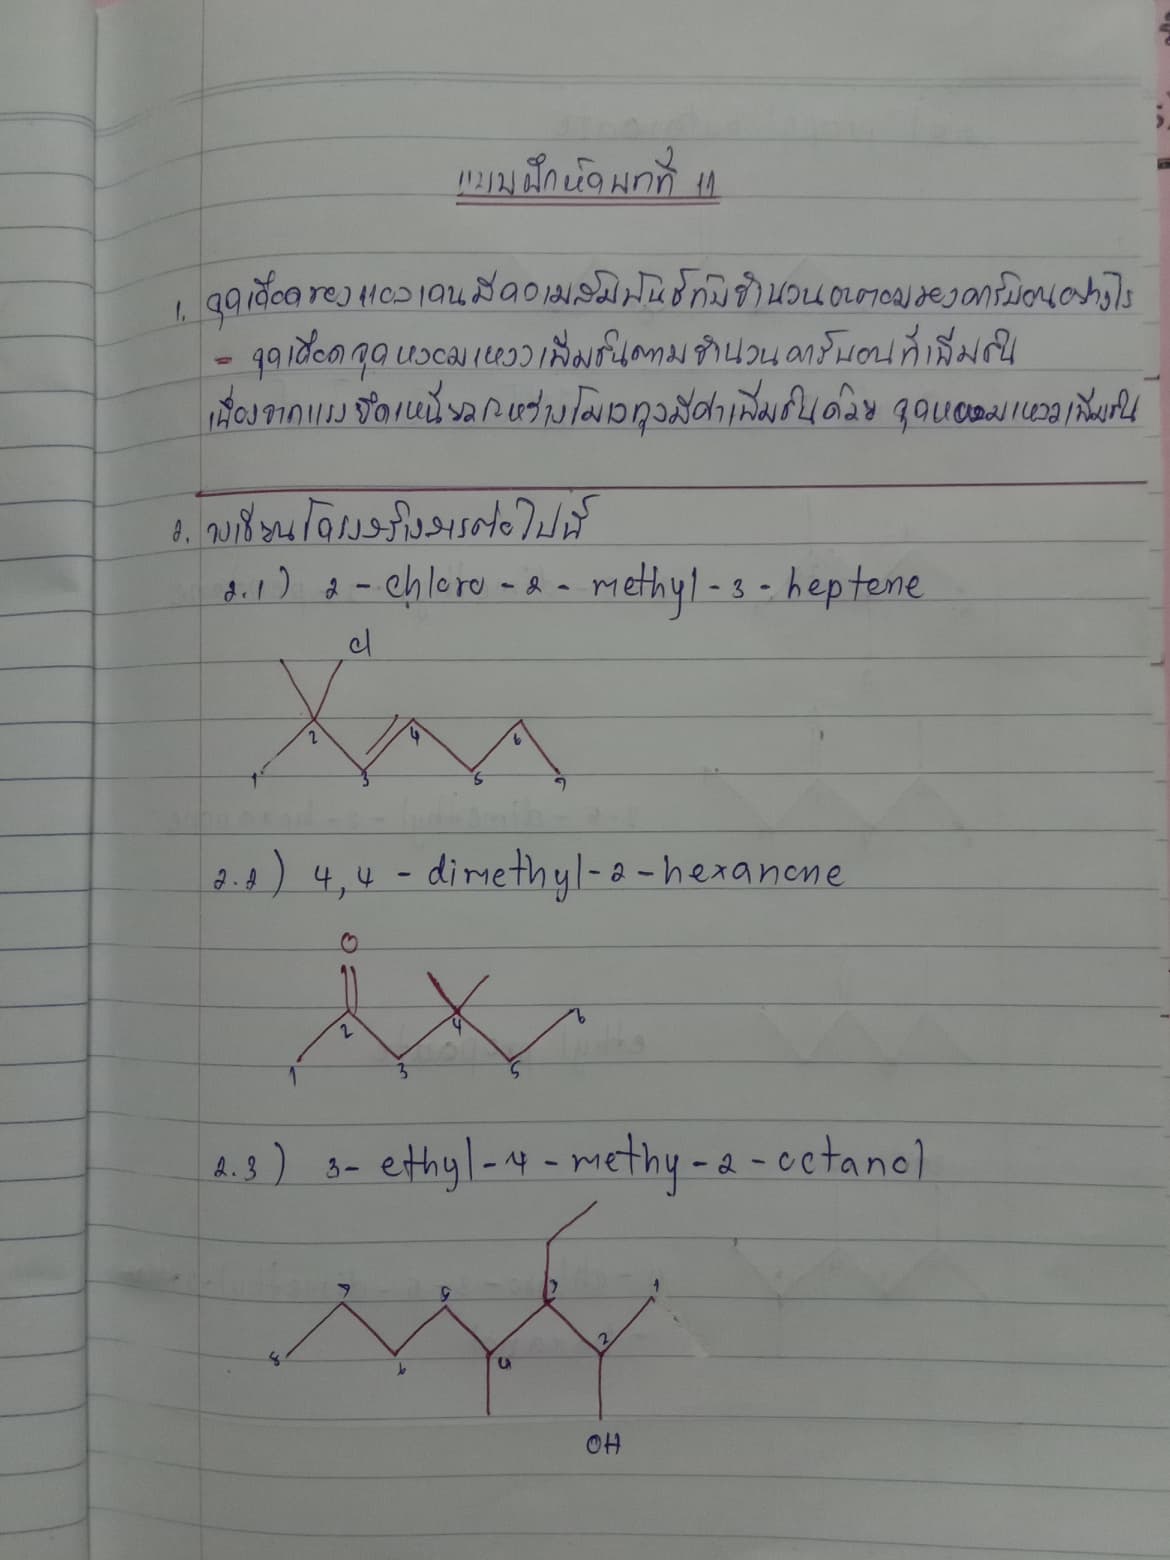 แบบฝึกหัดบทที่ 11
1. จุดเดือดของแอลเคนมีความสัมพันธ์กับจำนวนอะตอมของคาร์บอนอย่างไร
- จุดเดือดจุดหลอมเหลวเพิ่มขึ้นตามจำนวนคาร์บอนที่เพิ่มขึ้น
เนื่องจากแรงยึดเหนี่ยวระหว่างโมเลกุลมีค่าเพิ่มขึ้นด้วย จุดหลอมเหลวเพิ่มขึ้น
2. จงเขียนโครงสร้างสารต่อไปนี้
2.1) 2 - chloro - 2 - methyl - 3 - heptene
cl
1 2 3 4 5 6 7
2.2) 4,4 - dimethyl - 2 - hexanone
O
1 2 3 4 5 6
2.3) 3- ethyl - 4 - methy - 2 - octanol
8 7 6 5 4 3 2 1
OH